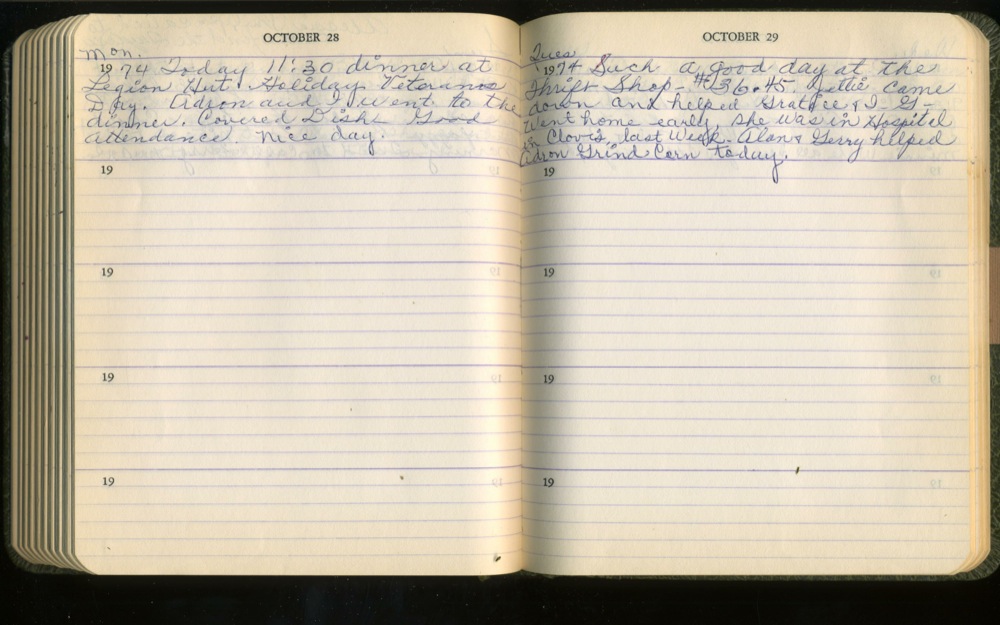 OCTOBER 28
Mon.
1974 Today 11:30 dinner at
Legion Hut. Holiday Veterans
Day. Adron and I went to the
dinner. Covered Dish. Good
attendance. nice day.
19
19
19
19
OCTOBER 29
Tues
1974 Such a good day at the
Thrift Shop - $136.45. came
down and helped & I. G-
Went home early, she was in Hospital
in Clovis, last Week. Alan & Gerry helped
Adron Grind Corn today.
19
19
19
19